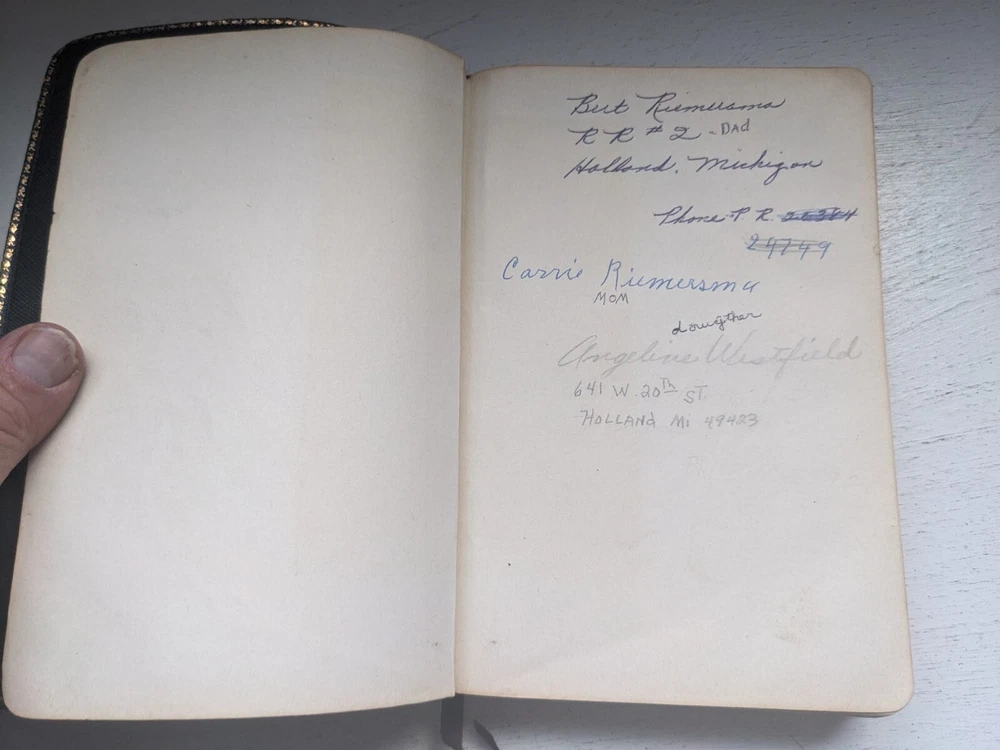 Bert Riemersma
R R # 2 - DAd
Holland, Michigan
Phone P. R.
24749
Carrie Riemersma
MOM
dougther
Angeline Westfield
641 W. 20Th ST.
HOLLANd Mi 49423